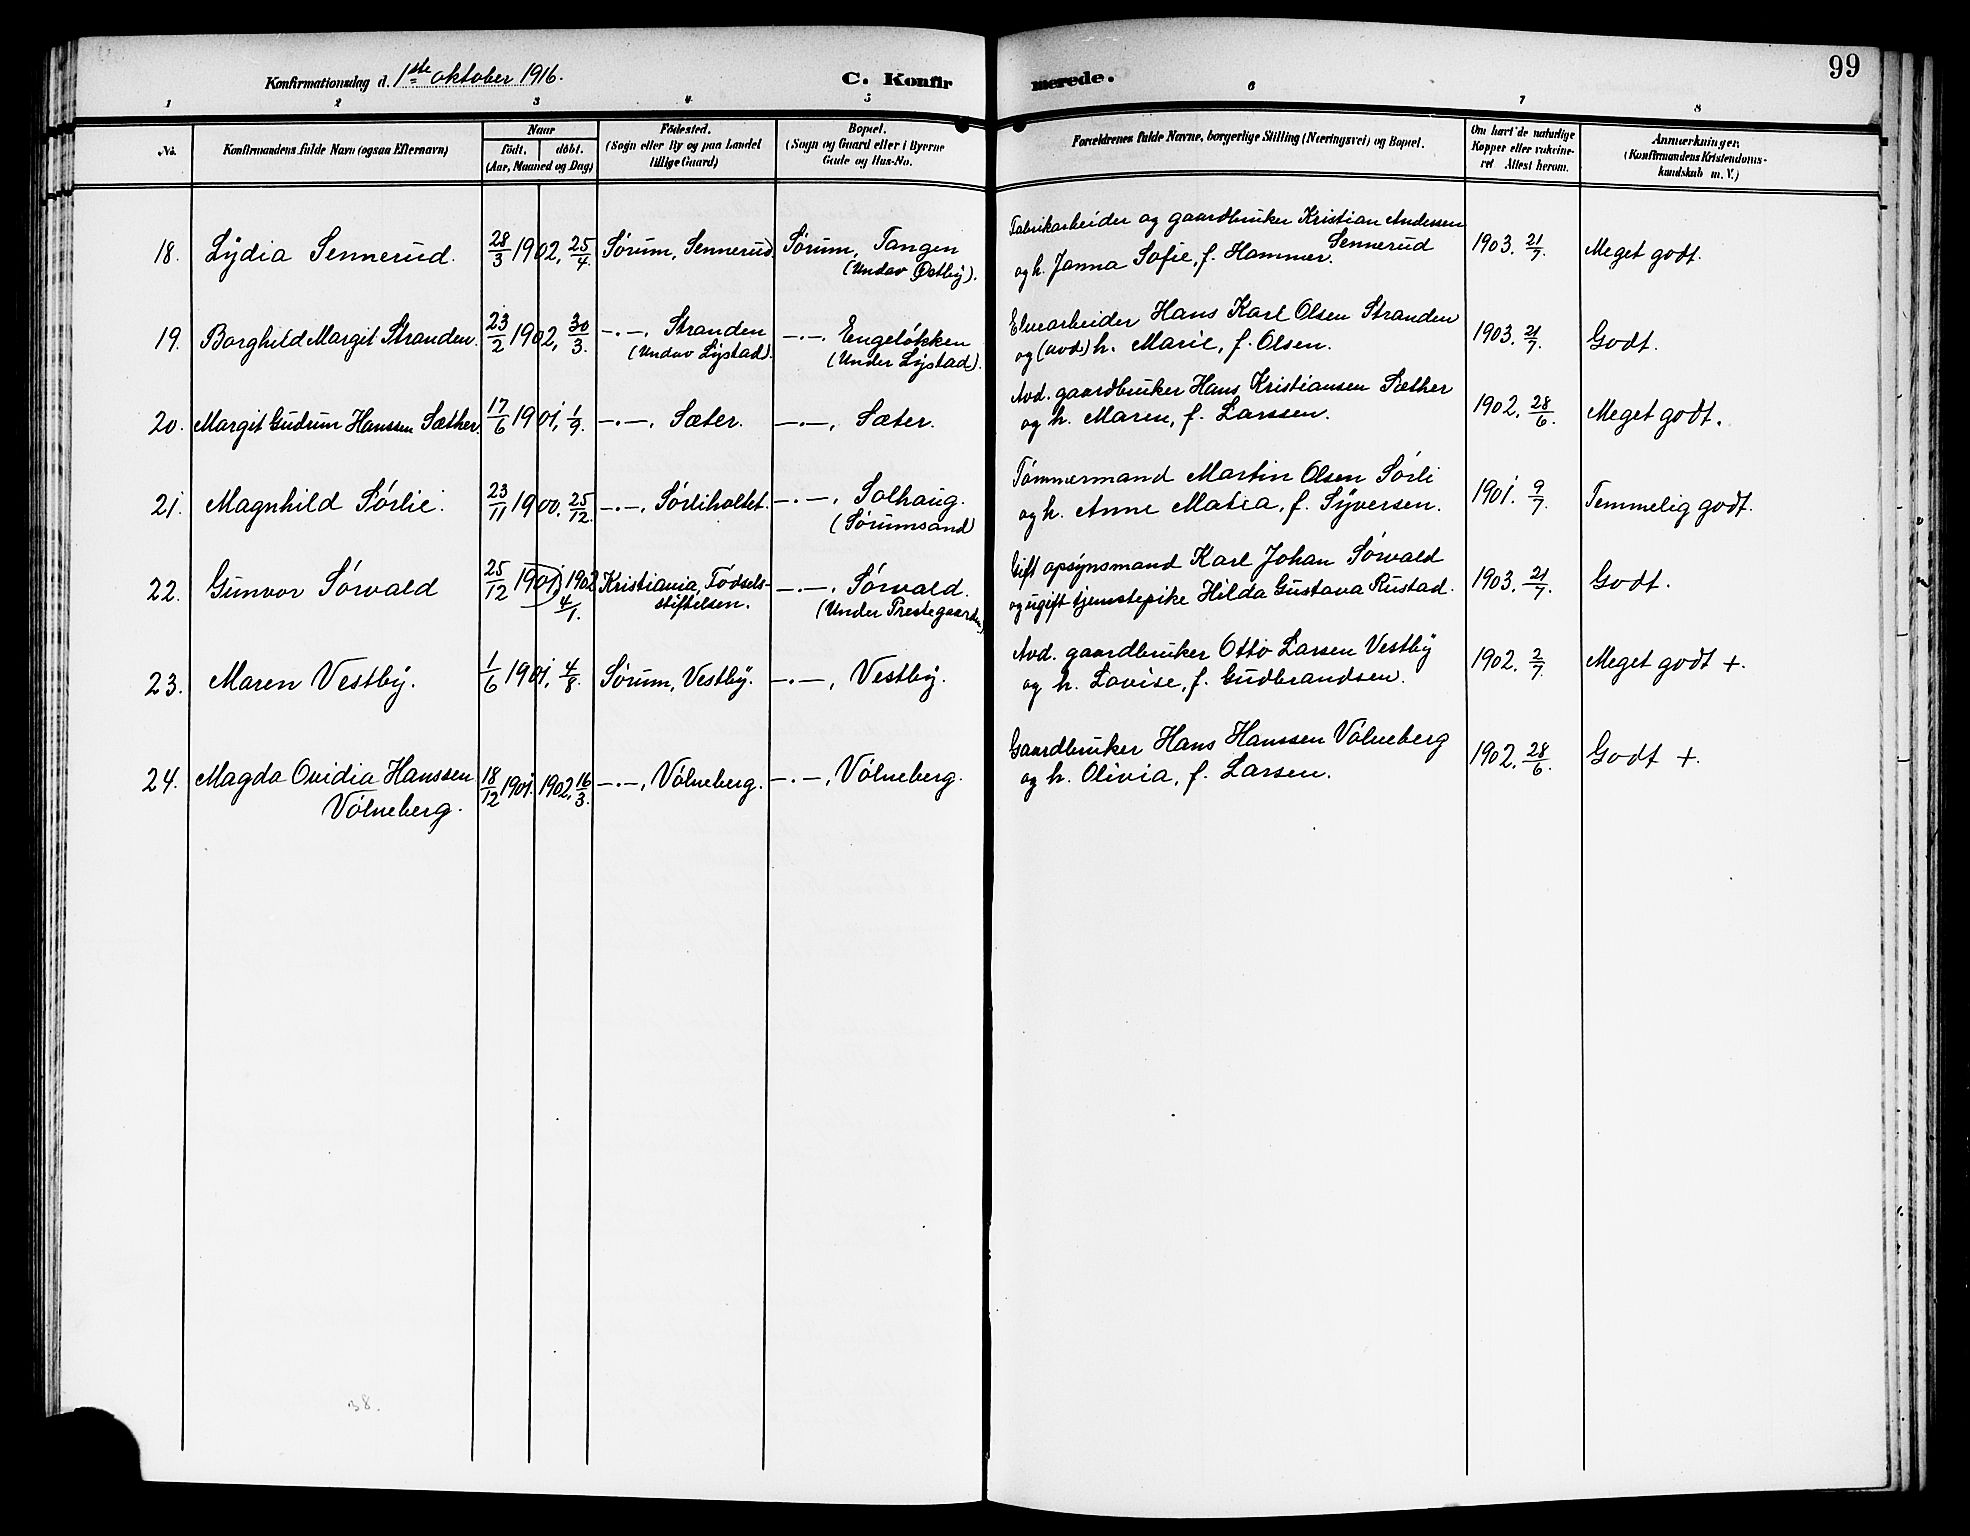 99
Konfirmationsdag d. 1ste oktober 1916. C. Konfirmerede.
1 2 3 4 5 6 7 8
No. Konfirmandens fulde Navn (ogsaa Efternavn) Naar født, døbt. (Aar, Maaned og Dag) Fødested. (Sogn eller By og paa Landet tillige Gaard) Bopæl. (Sogn og Gaard eller i Byerne Gade og Hus-No. Forældrenes fulde Navne, borgerlige Stilling (Næringsvei) og Bopæl. Om havt de naturlige Kopper eller vakcineret Attest herom. Anmærkninger. (Konfirmandens Kristendomskundskab m. V.)
18. Lydia Sennerud. 28/3 1902, 25/4. Sørum, Sennerud Sørum, Tangen Fabrikarbeider og gaardbruker Kristian Andersen Sennerud 1903. 21/7. Meget godt.
(Undav Østby). og h. Janna Sofie, f. Hammer.
19. Borghild Margit Stranden. 23/2 1902, 30/3. -·-, Stranden -·-, Engeløkken Elvearbeider Hans Karl Olsen Stranden 1903. 21/7. Godt.
(Undav Lystad). (Under Lystad). og (avd.) h. Marie, f. Olsen.
20. Margit Gudrun Hanssen Sæther. 17/6 1901, 1/9. -·-, Sæter. -·-, Sæter. Avd. gaardbruker Hans Kristiansen Sæther 1902. 28/6. Meget godt.
og h. Maren, f. Larssen.
21. Magnhild Sørlie. 23/11 1900. 25/12. -·-, Sørliholtet. -·-, Solhaug. Tømmermand Martin Olsen Sørli 1901. 9/7. Temmelig godt.
(Sørumsand) og h. Anne Matea, f. Syversen.
22. Gunvor Sørvald 25/12 1901, 1902 4/1. Kristiania, Fødselsstiftelsen. -·-, Sørvald. Gift opsynsmand Karl Johan Sørvald 1903. 21/7. Godt.
(Under Prestegaarden) og ugift tjenestepike Hilda Gustava Rustad.
23. Maren Vestby. 1/6 1901, 4/8. Sørum, Vestby. -·-, Vestby. Avd. gaardbruker Otto Larsen Vestby 1902. 2/7. Meget godt +.
og h. Lovise, f. Gudbrandsen.
24. Magda Ovidia Hanssen 18/12 1901. 1902, 16/3. -·-, Vølneberg. -·-, Vølneberg. Gaardbruker Hans Hanssen Vølneberg 1902. 28/6. Godt +.
Vølneberg. og h. Olivia, f. Larsen.
38.